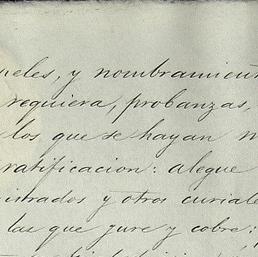 peles, y nombramient
requiera, probanzas,
los que se hayan n
ratificacion: alegue
istrados y otros curiale
las que jure y cobre;